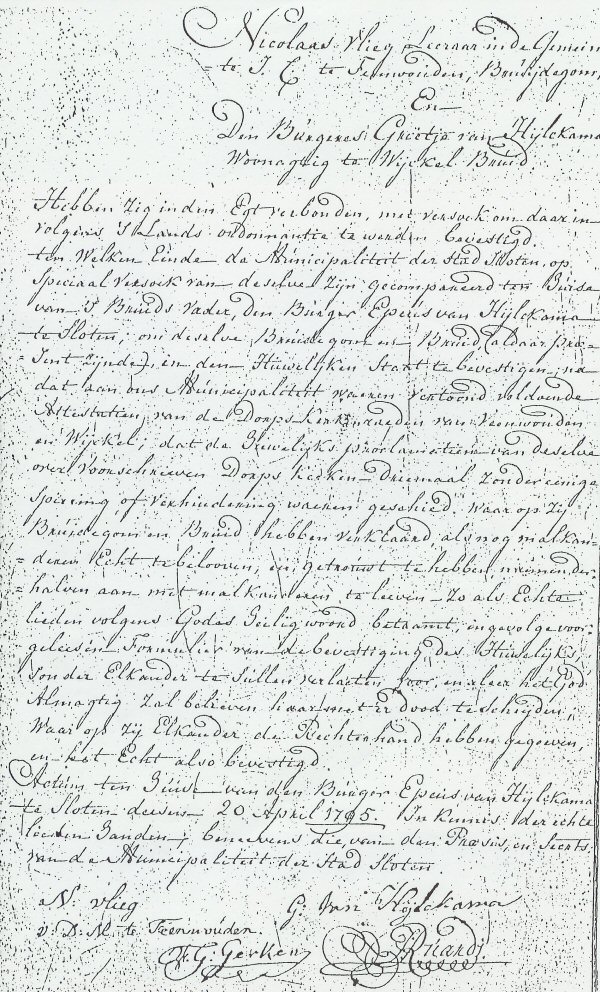 Nicolaas Vlieg Leeraar in de Gemein
te J. C. te Feenwouden, Bruijdegom,
En
Den Burgeres Grietje van Hijlckama
Woonagtig te Wijckel Bruid.
Hebben zig in den Egt verbonden, met versoek om daar in
volgens 's Lands ordonnantie te werden bevestigd.
ten Welken Einde de Municipaliteit der Stad Sloten, op
Speciaal versoek van deselve zijn gecompareerd ten Huise
van 's Bruids Vader, den Burger Epeus van Hijlckama
te Sloten, om deselve Bruidegom en Bruid (aldaar prae-
sent zijnde) in den Huwelijken Staat te bevestigen, na
dat aan ons Municipaliteit waeren vertoond voldoende
Attestatien, van de Dorps Kerkenraeden van Veenwouden
en Wijckel; dat de Huwelijks proclamatien van deselve
over voorschreeven Dorps kerken Driemaal zonder eenige
Spierring of verhindering waeren geschied. waar op zij
Bruidegom en Bruid hebben verklaard, als nog malkan-
deren Echt te belooven, en getrouwt te hebben, neemende
halven aan met malkanderen te leeven Zo als Echte
lieden volgens Godes Heilig woord betaamt, ingevolge voor-
geleesen Formulier van de bevestiging des Huwelijks,
sonder Elkander te Sullen verlaeten voor, en aleer het God
Almagtig zal believen haar met er dood te scheijden;
Waar op zij Elkander de Rechterhand hebben gegeven,
en hot Echt also bevestigd.
Actum ten Huise van den Burger Epeus van Hijlckama
te Sloten deesen 20 April 1795. In kennis der echte
lieden Handen; beneevens die, van den Praeses, en Secrts
van de Municipaliteit der Stad Sloten.
N: Vlieg
G: Van Hijlckama
v. D. M. te Feenwouden.
F. G. Gerken
Ruardi